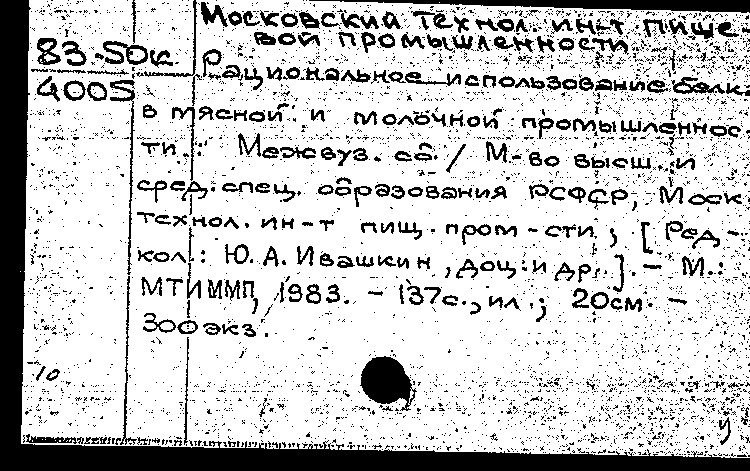 Московский технол. ин-т пище-
вой промышленности
83.50к Рациональное использование белка
4005
в мясной и молочной промышленнос
ти.: Межвуз. сб. / М-во высш. и
сред. спец. образования РСФСР, Моск
технол. ин-т пищ. пром-сти ; [Ред-
кол.: Ю. А. Ивашкин, доц. и др.]. – М.:
МТИММП, 1983. – 137с., ил.; 20см. –
300 экз.
10
у